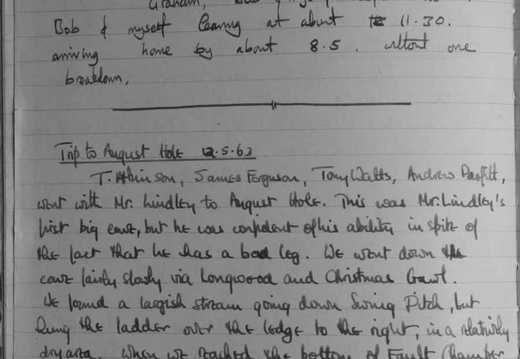 Graham,
Bob & myself leaving at about 11.30.
arriving home by about 8.5. without one
breakdown.
Trip to August Hole 12.5.63
T. Atkinson, James Ferguson, Tony Watts, Andrew Parfitt,
went with Mr. Lindley to August Hole. This was Mr. Lindley's
first big cave, but he was confident of his ability in spite of
the fact that he has a bad leg. We went down the
cave fairly slowly via Longwood and Christmas Crawl.
We found a largish stream going down Swing Pitch, but
hung the ladder over the ledge to the right, in a relatively
dry area. When we reached the bottom of Fault Chamber